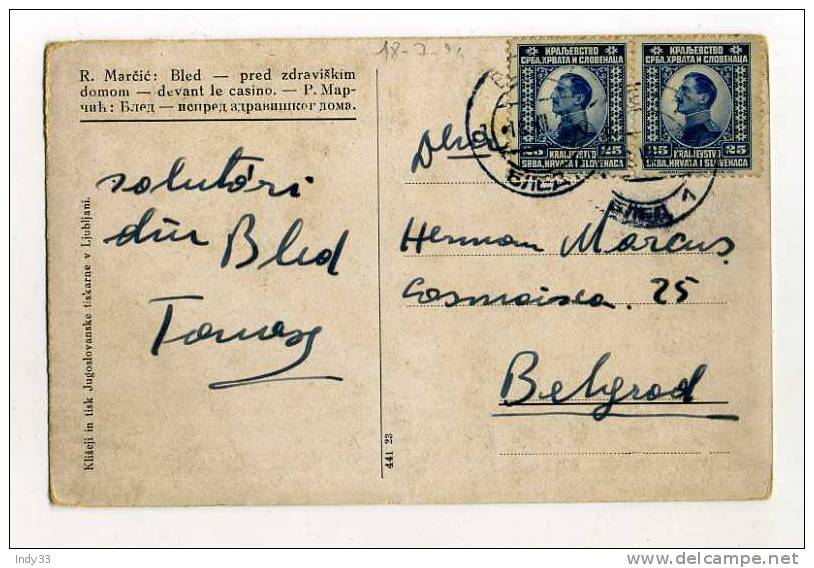 18-7-24
R. Marčić: Bled — pred zdraviškim
domom — devant le casino. — Р. Мар-
чић: Блед — испред здравишког дома.
salutări
din Bled
Tomasz
Klišeji in tisk Jugoslovanske tiskarne v Ljubljani.
441 23
КРАЉЕВСТВО
СРБА, ХРВАТА И СЛОВЕНАЦА
25 25
KRALJEVSTVO
SRBA, HRVATA I SLOVENACA
КРАЉЕВСТВО
СРБА, ХРВАТА И СЛОВЕНАЦА
25 25
KRALJEVSTVO
SRBA, HRVATA I SLOVENACA
БЛЕД
БЛЕД
Herman Marcus
25
Belgrad
Indy33
delcampe.net